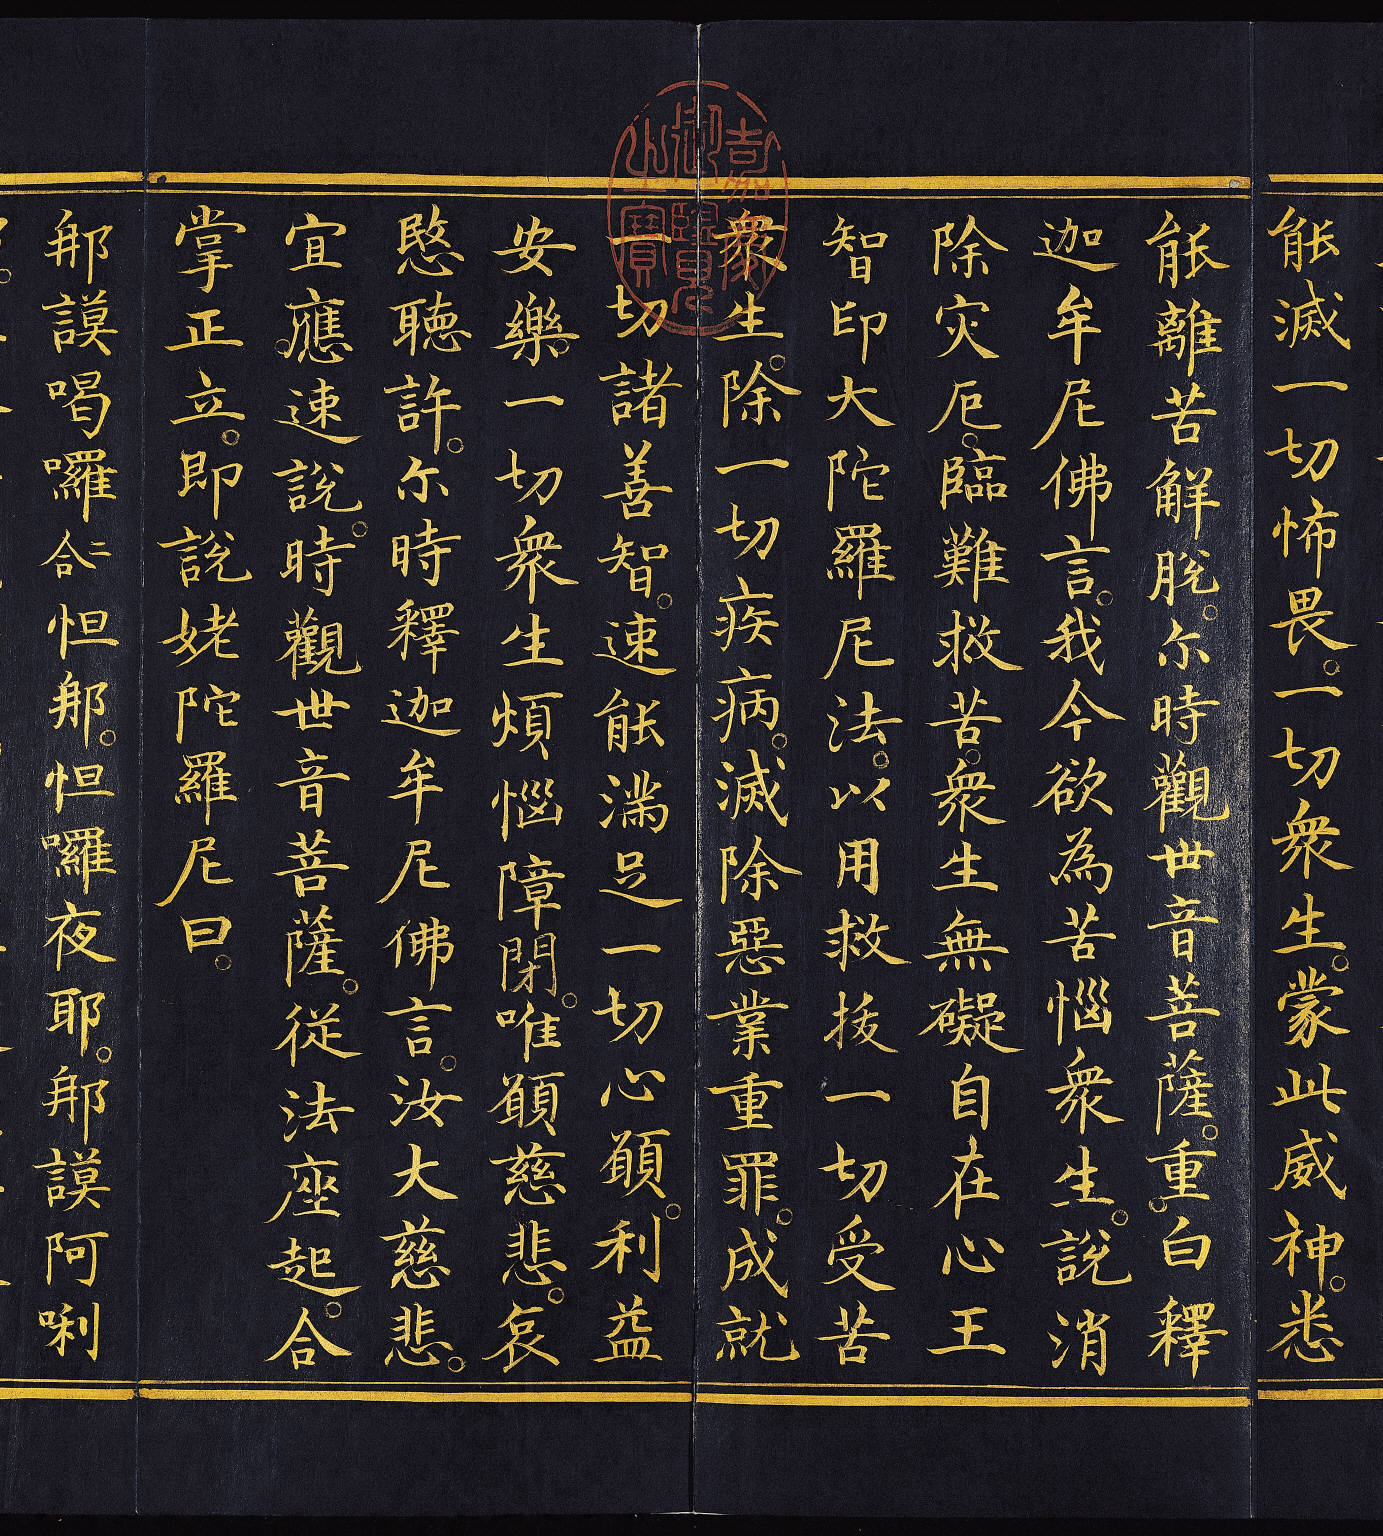 能滅一切怖畏。一切衆生。蒙此威神。悉
能離苦解脫。尔時觀世音菩薩。重。白釋
迦牟尼佛言。我今欲為苦惱衆生。說消
除灾厄。臨難救苦。衆生無礙自在心王
智印大陀羅尼法。以用救拔一切受苦
衆生。除一切疾病。滅除惡業重罪。成就
一切諸善智。速能滿足一切心願。利益
安樂。一切衆生煩惱障閉。唯願慈悲。哀
愍聽許。尔時釋迦牟尼佛言。汝大慈悲。
宜應。速說。時觀世音菩薩。從法座起。合
掌正立。即說姥陀羅尼曰。
那謨喝囉二合怛那。怛囉夜耶。那謨阿唎
嘉慶御覽之寶